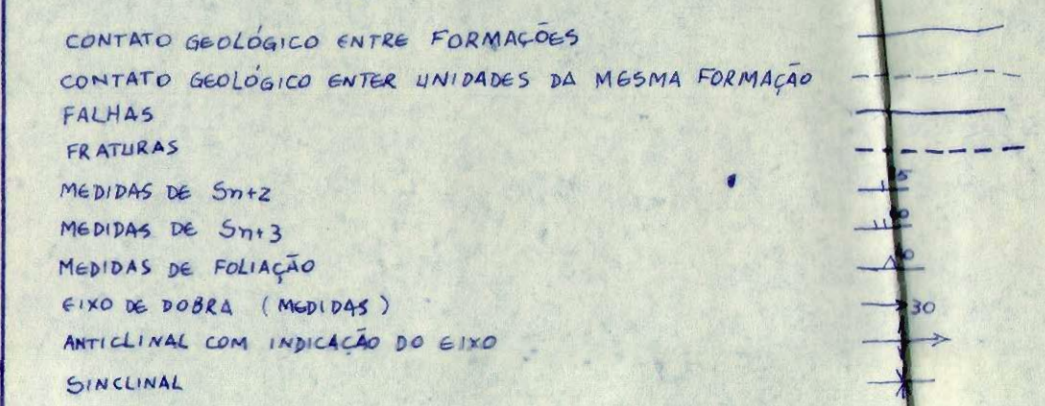 CONTATO GEOLÓGICO ENTRE FORMAÇÕES
CONTATO GEOLÓGICO ENTER UNIDADES DA MESMA FORMAÇÃO
FALHAS
FRATURAS
MEDIDAS DE Sn+2
MEDIDAS DE Sn+3
MEDIDAS DE FOLIAÇÃO
EIXO DE DOBRA (MEDIDAS) 30
ANTICLINAL COM INDICAÇÃO DO EIXO
SINCLINAL